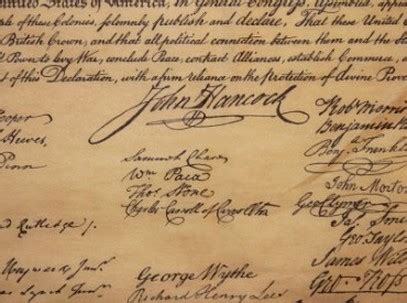 United States of America, in General Congress, Assembled, appea
ple of these Colonies, solemnly publish and declare, That these United C
British Crown, and that all political connection between them and the Sta
Power to levy War, conclude Peace, contract Alliances, establish Commerce, a
rt of this Declaration, with a firm reliance on the protection of divine Prove
John Hancock
Cooper
Hewes,
Penn
Samuel Chase
Wm Paca
Thos Stone
Charles Carroll of Carrollton
Robt Morris
Benjamin Ru
Benj. Franklin
John Morton
Geo Clymer
Jas. Smi
Geo. Taylor
James Wils
Geo. Ross
Rutledge /.
Heyward Junr.
Lynch Junr.
George Wythe
Richard Henry Lee